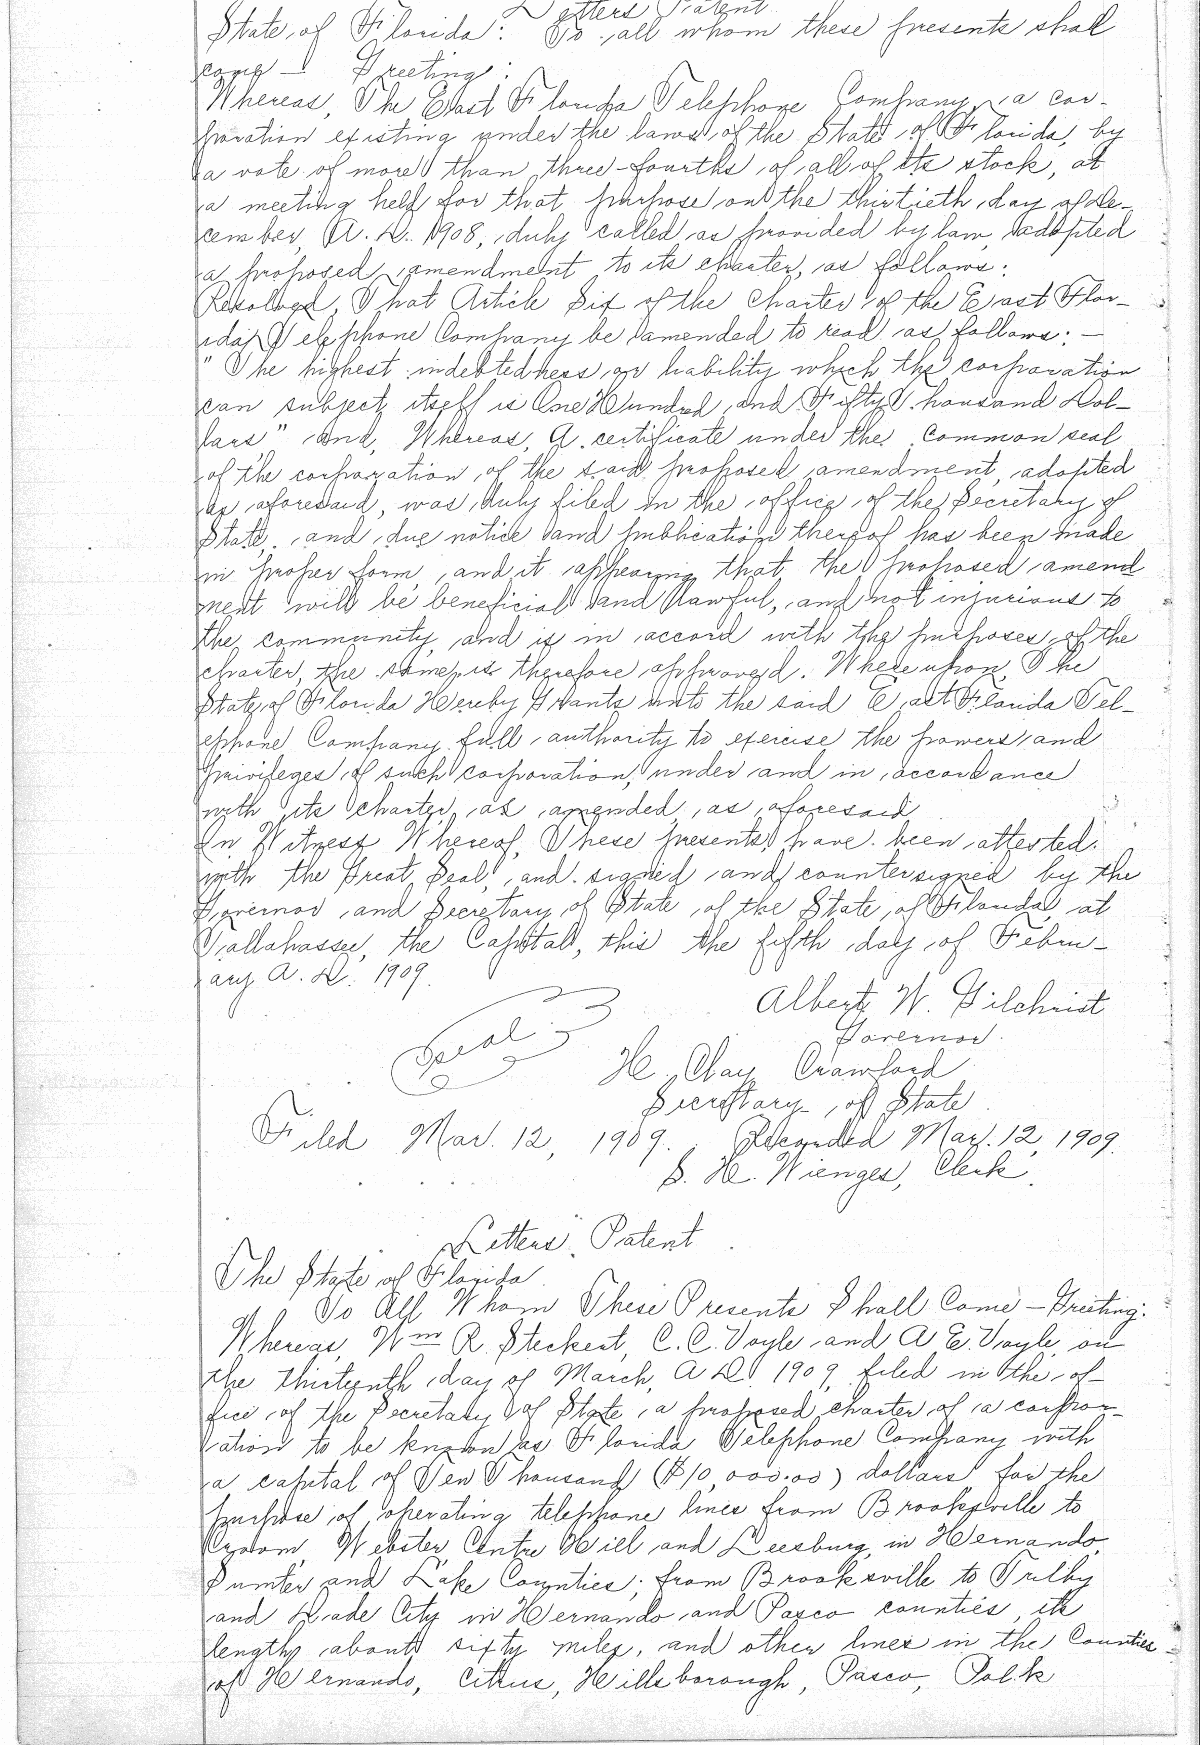 Letters Patent
State of Florida: To all whom these presents shall
come — Greeting:
Whereas, The East Florida Telephone Company, a cor-
poration existing under the laws of the State of Florida, by
a vote of more than three-fourths of all of its stock, at
a meeting held for that purpose on the thirtieth day of De-
cember, A. D. 1908, duly called as provided by law, adopted
a proposed amendment to its charter, as follows:
Resolved, That Article Six of the Charter of the East Flor-
ida Telephone Company be amended to read as follows: —
"The highest indebtedness or liability which the corporation
can subject itself is One Hundred and Fifty Thousand Dol-
lars" and, Whereas, A certificate under the common seal
of the corporation of the said proposed amendment, adopted
as aforesaid, was duly filed in the office of the Secretary of
State, and due notice and publication thereof has been made
in proper form, and it appearing that the proposed amend
ment will be beneficial and lawful, and not injurious to
the community, and is in accord with the purposes of the
charter, the same is therefore approved. Whereupon, The
State of Florida Hereby Grants unto the said East Florida Tel-
ephone Company full authority to exercise the powers and
privileges of such corporation, under and in accordance
with its charter as amended, as aforesaid
In Witness Whereof, These presents have been attested
with the Great Seal, and signed and countersigned by the
Governor and Secretary of State of the State of Florida, at
Tallahassee, the Capital, this the fifth day of Febru-
ary A. D. 1909.
Albert W. Gilchrist
Governor.
Seal
H. Clay Crawford
Secretary of State
Filed Mar. 12, 1909. Recorded Mar. 12, 1909.
S. H. Wienges, Clerk.
Letters Patent
The State of Florida
To All Whom These Presents Shall Come — Greeting:
Whereas, Wm R. Steckert, C. C. Voyle and A E. Voyle, on
the thirteenth day of March, A D. 1909, filed in the of-
fice of the Secretary of State a proposed charter of a corpor-
ation to be known as Florida Telephone Company with
a capital of Ten Thousand ($10,000.00) dollars for the
purpose of operating telephone lines from Brooksville to
Croom, Webster, Centre Hill and Leesburg, in Hernando,
Sumter and Lake Counties; from Brooksville to Trilby
and Dade City in Hernando and Pasco counties, its
length about sixty miles, and other lines in the Counties
of Hernando, Citrus, Hillsborough, Pasco, Polk